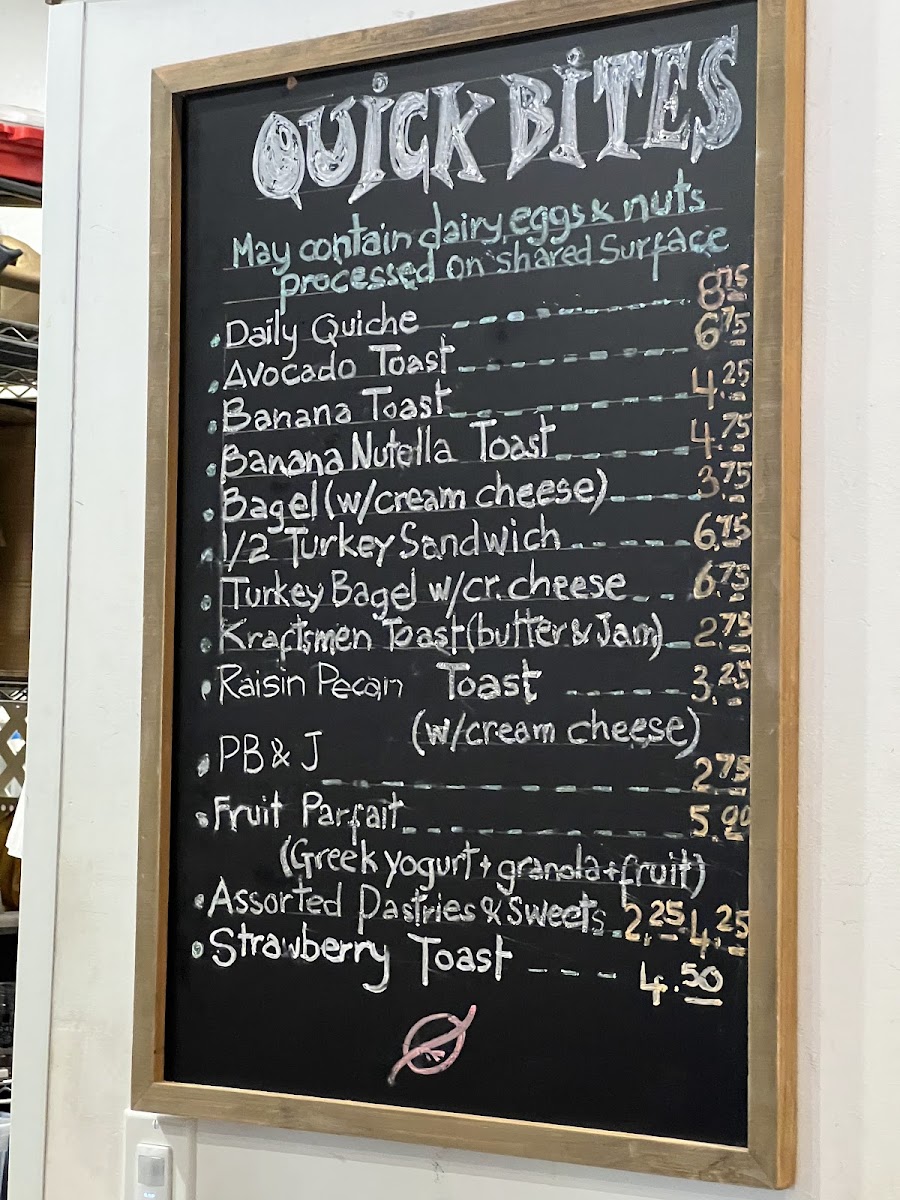 QUiCK BiTES
May contain dairy, eggs & nuts
processed on shared Surface
Daily Quiche 8.75
Avocado Toast 6.75
Banana Toast 4.25
Banana Nutella Toast 4.75
Bagel (w/cream cheese) 3.75
1/2 Turkey Sandwich 6.75
Turkey Bagel w/cr. cheese 6.75
Kraftsmen Toast (butter & Jam) 2.75
Raisin Pecan Toast 3.25
(w/cream cheese)
PB & J 2.75
Fruit Parfait 5.00
(Greek yogurt + granola + fruit)
Assorted Pastries & Sweets 2.25-4.25
Strawberry Toast 4.50